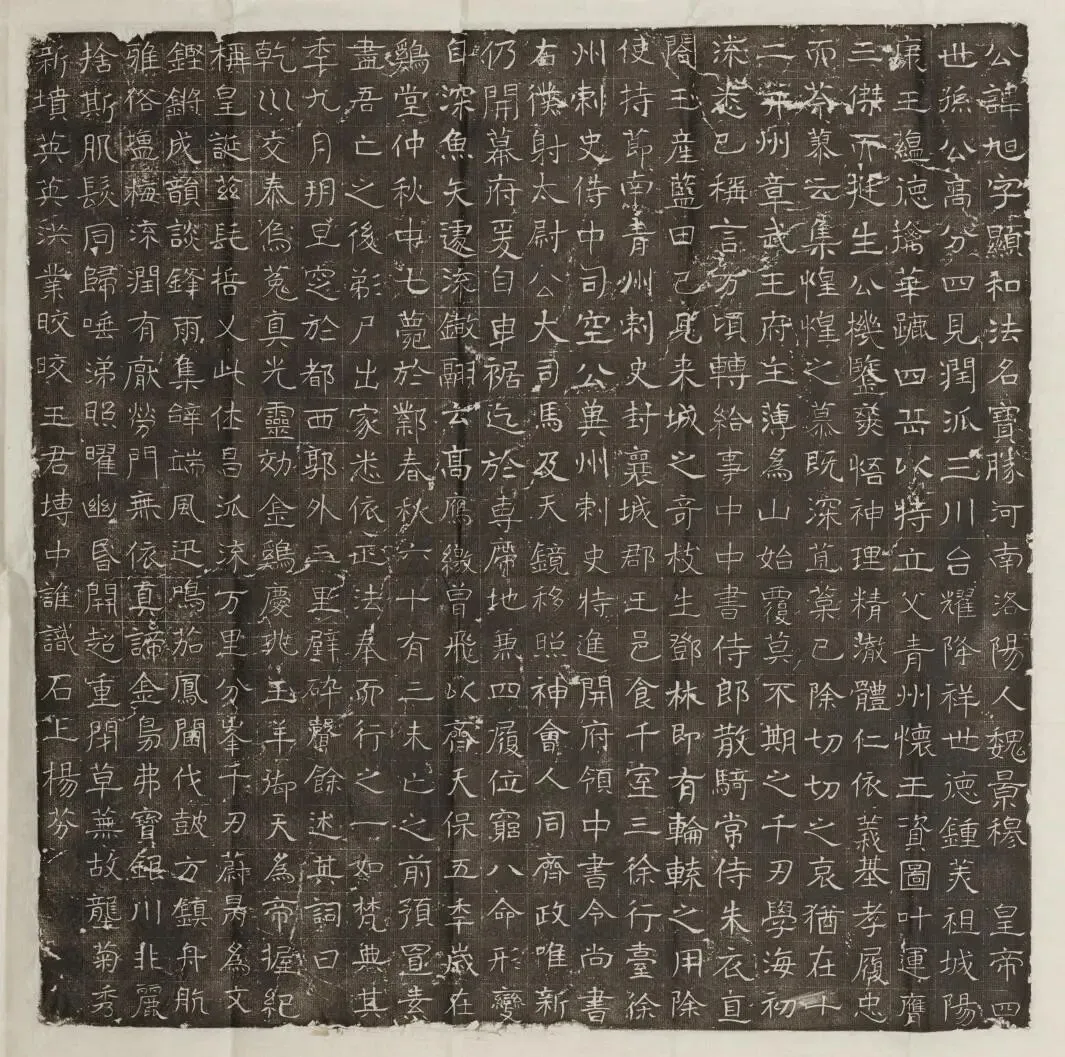 公諱旭字顯和法名寶勝河南洛陽人魏景穆　皇帝四
世孫公高分四見潤派三川台耀降祥世德鍾美祖城陽
康王蘊德摛華蹠四岳以特立父青州懷王資圖叶運膺
三傑而挺生公機鑒爽悟神理精澈體仁依義基孝履忠
而荼蓼云集惶惶之慕既深苴菒已除切切之哀猶在十
二而州章武王府主薄為山始覆莫不期之千刃學海初
流悉已稱言方頃轉給事中中書侍郎散騎常侍朱衣直
閤玉產藍田已見来城之奇枝生鄧林即有輪轅之用除
使持節南青州刺史封襄城郡王邑食千室三徐行臺徐
州刺史侍中司空公兾州刺史特進開府領中書令尚書
右僕射太尉公大司馬及天鏡移照神會人同齊政唯新
仍開幕府爰自曳裾迄於專席地兼四履位窮八命形變
自深魚矢遽流鏾翮云高鴈繳曾飛以齊天保五秊歲在
鷄堂仲秋中七薨於鄴春秋六十有三未亡之前預置素
盡吾亡之後剃尸出家悉依正法奉而行之一如梵典其
秊九月玥旦窆於都西郭外三里劈碎聲餘述其詞曰
乾巛交泰烏菟真光靈効金鷄慶珧玉羊御天為帝握紀
稱皇誕兹髦哲乂此休昌派流万里分峯千刃蔚昺為文
鏗鏘成韻談鋒雨集辭端風迅鳴笳鳳闈伐鼓方鎮舟航
雅俗塩梅流潤有厭勞門無依真諦金烏弗寶銀川非麗
捨斯肌髮同歸唾涕照曜幽昏開超重閇草蕪故壟菊秀
新墳英英洪業晈晈王君塼中誰識石上楊芬